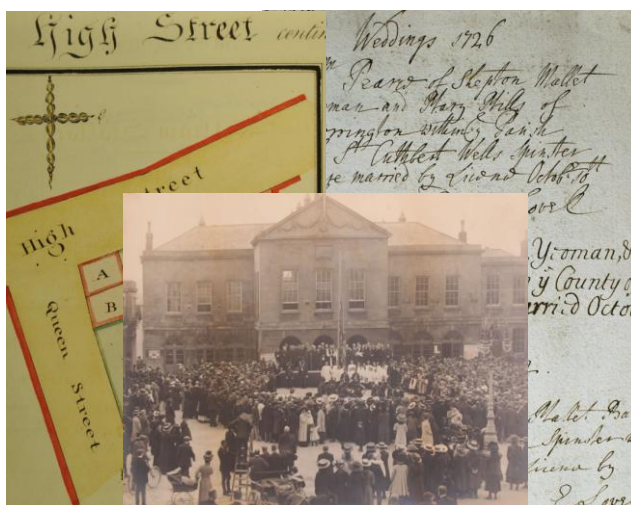 High Street continu
High Street
Queen Street
A
B
Weddings 1726
Pearce of Shepton Mallet
man and Mary Mills of
rrington within ye Parish
St Cuthbert Wells Spinster
married by Licence Octobr 10th
Lovell
Yeoman, &
y County o
rried Octo
Mallet Ba
Spinster
licence by
E Love